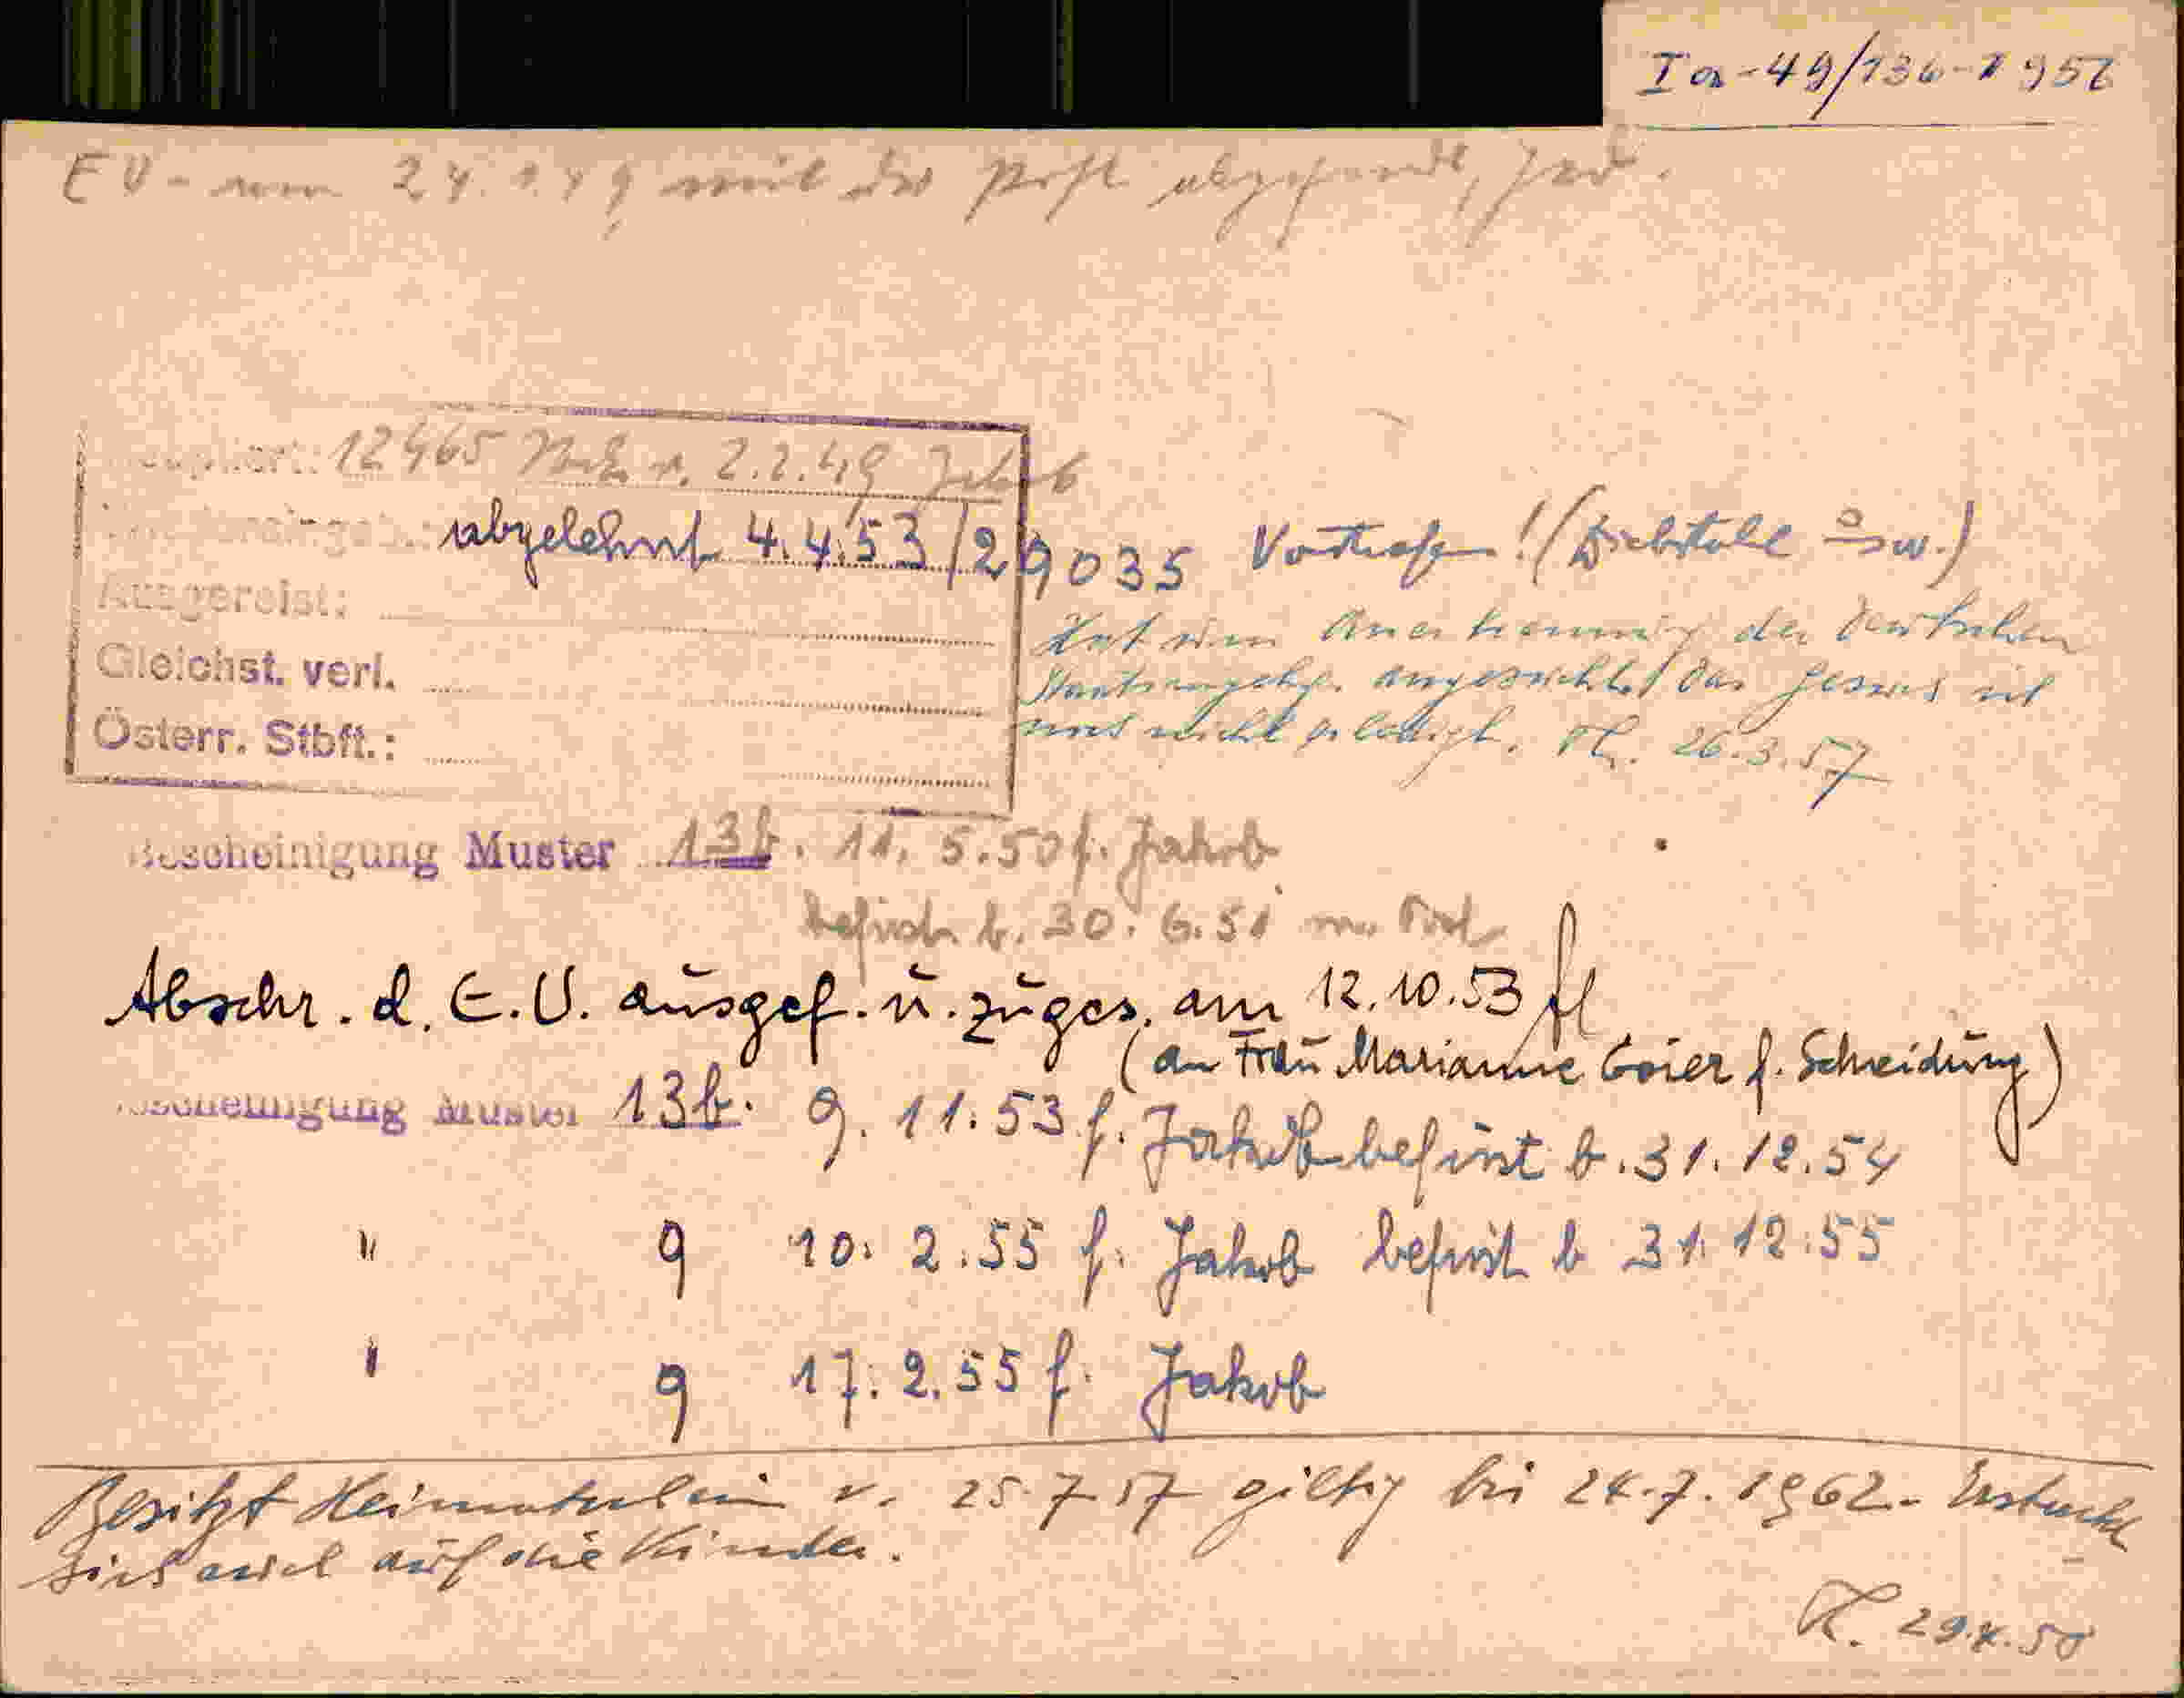 Ia-49/136-1956
EU- vom 24.1.49 mit der Post abgesandt,
12465 v. 2.2.49 Jakob
abgelehnt 4.4.53/29035 Vorstrafen! (Diebstahl usw.)
Ausgereist:
Hat um Anerkennung der deutschen
Gleichst. verl.
Staatsangeh. angesucht, das Gesuch ist
Österr. Stbft.:
noch nicht erledigt. 26.3.57
Bescheinigung Muster 13b. 11.5.50 f. Jakob
befrist. b. 30.6.51 m.
Abschr. d. E.U. ausgef. u. zuges. am 12.10.53
(an Frau Marianne Goier f. Scheidung)
Bescheinigung Muster 13b. 9.11.53 f. Jakob befrist b. 31.12.54
" 9 10.2.55 f. Jakob befrist b 31.12.55
" 9 17.2.55 f. Jakob
Besitzt Heimatschein v. 25.7.57 giltig bis 24.7.1962.- Erstreckt
sich auch auf die Kinder.